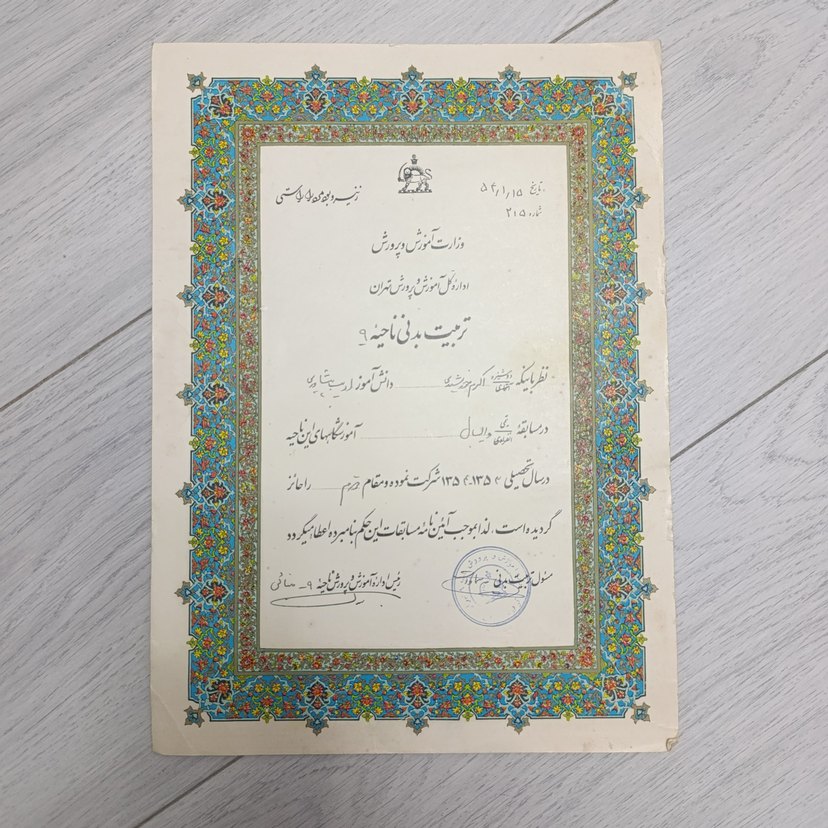 تاریخ ۵۴/۱/۱۵
شماره ۲۱۵
ز نیرو بود مرد را راستی
وزارت آموزش و پرورش
اداره کل آموزش و پرورش تهران
تربیت بدنی ناحیهٔ ۹
نظر باینکه دوشیزه آقای اکرم خورشیدی دانش آموز
در مسابقهٔ تیمی انفرادی والیبال آموزشگاههای این ناحیه
در سال تحصیلی ۱۳۵۴-۱۳۵ شرکت نموده و مقام را حائز
گردیده است، لذا بموجب آئین نامهٔ مسابقات این حکم بنامبرده اعطا میگردد
مسئول تربیت بدنی
رئیس اداره آموزش و پرورش ناحیهٔ ۹